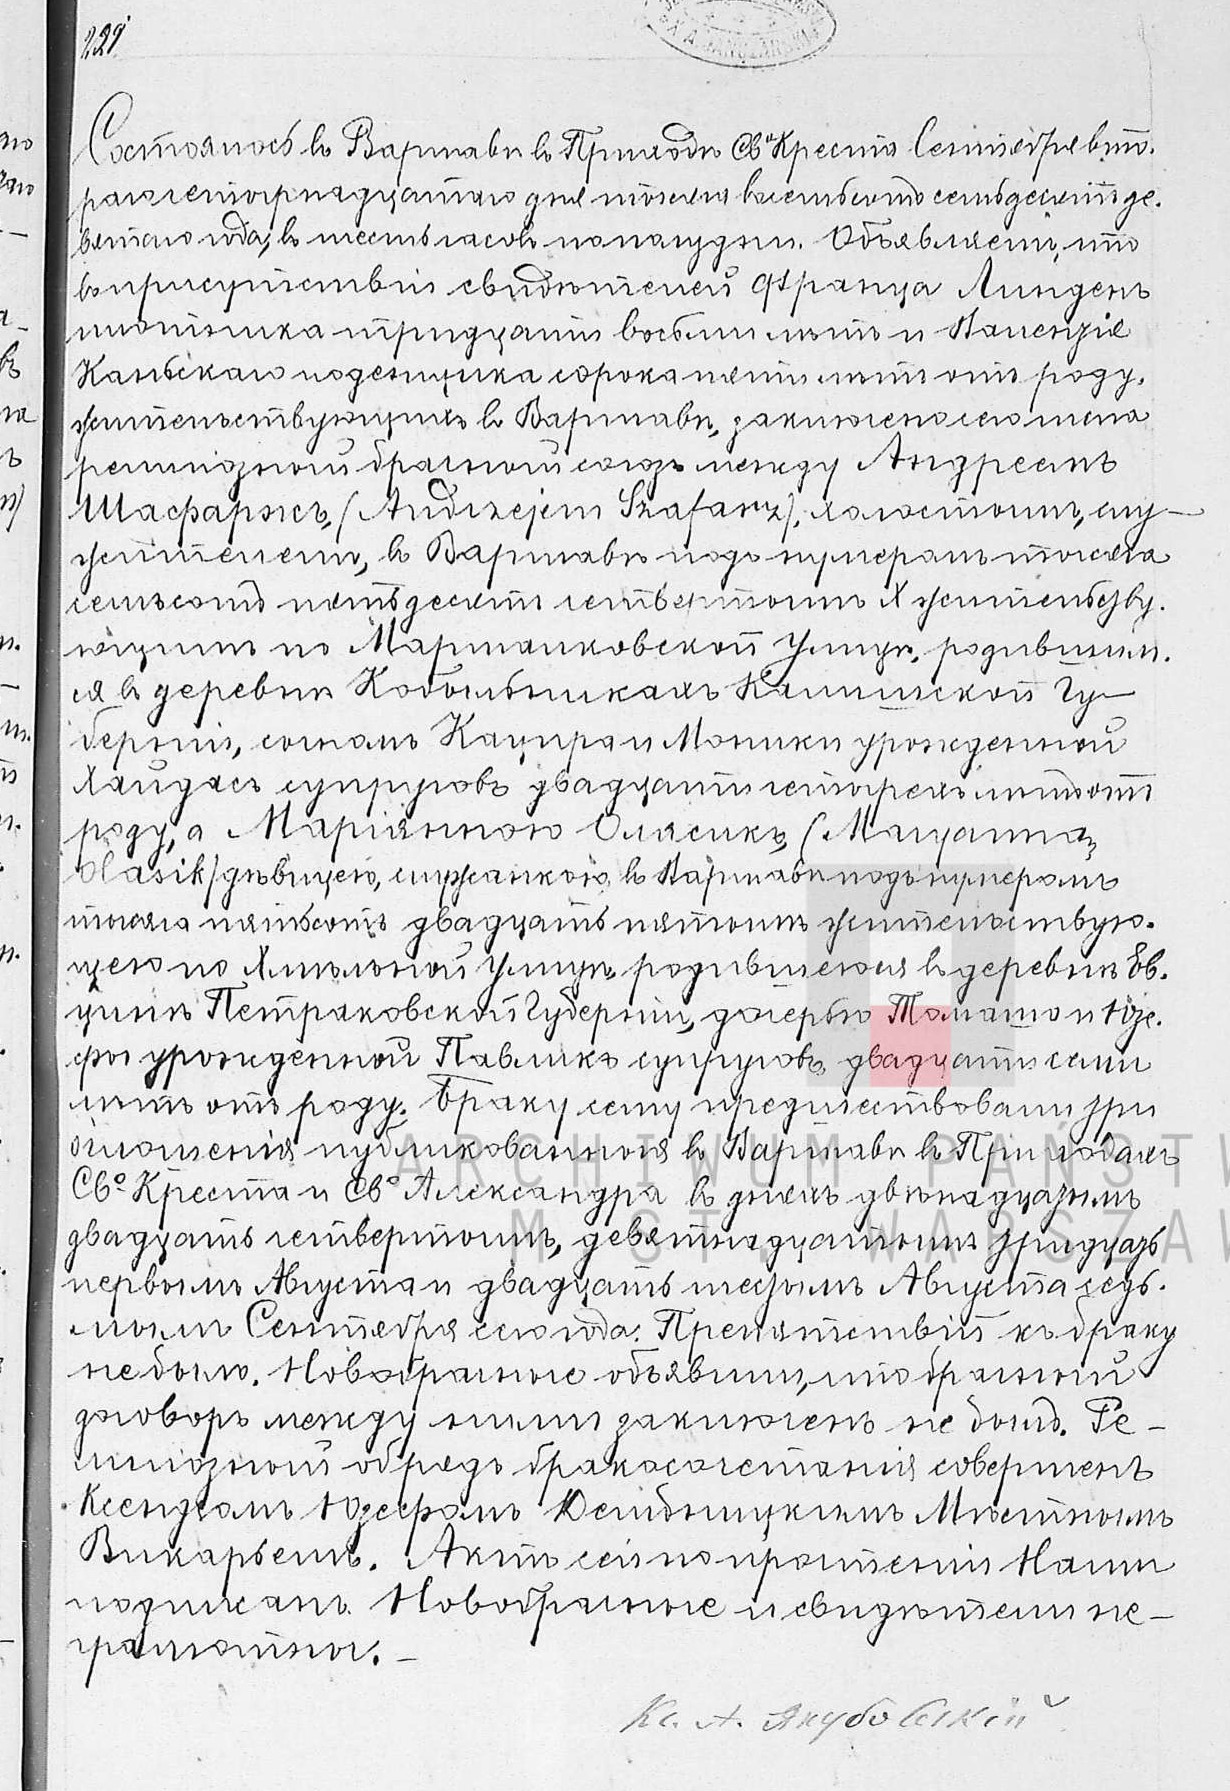 221
Состоялось въ Варшавѣ въ Приходѣ Св͞о Креста Сентября вто.
раго четырнадцатаго дня тысяча восемьсотъ семьдесятъ де.
вятаго года, въ шесть часовъ пополудни. Объявляемъ, что
въ присутствіи свидѣтелей Франца Линденъ
плотника тридцати восьми лѣтъ и Валенція
Каньскаго поденщика сорока пяти лѣтъ отъ роду,
жительствующихъ въ Варшавѣ, заключенъ сего числа
религіозный брачный союзъ между Андреемъ
Шафаржъ, (Andrzejem Szafarz), холостымъ, слу-
жителемъ, въ Варшавѣ подъ нумеромъ тысяча
семьсотъ пятьдесятъ четвертымъ X жительству.
ющимъ по Маршалковской Улицѣ, родившим.
ся въ деревнѣ Калишской Гу-
берніи, сыномъ Кацпра и Моники урожденной
Хайдасъ супруговъ двадцати четырехъ лѣтъ отъ
роду, а Маріянною Олясикъ, (Maryanną
Olasik) дѣвицею, служанкою, въ Варшавѣ подъ нумеромъ
тысяча пятьсотъ двадцать пятымъ жительствую.
щею по Хмѣльной Улицѣ, родившеюся въ деревнѣ Ев.
цинѣ Петраковской Губерніи, дочерью Томаша и Юзе.
фы урожденной Павликъ супруговъ, двадцати семи
лѣтъ отъ роду. Браку сему предшествовали три
оглашенія публикованныя въ Варшавѣ въ Приходахъ
Св͞о Креста и Св͞о Александра въ дняхъ двѣнадцатымъ
двадцать четвертымъ, девятнадцатымъ тридцать
первымъ Августа и двадцать шестымъ Августа седь.
мымъ Сентября сего года. Препятствій къ браку
не было. Новобрачные объявили, что брачный
договоръ между ними заключенъ не былъ. Ре-
лигіозный обрядъ бракосочетанія совершенъ
Ксендзомъ Юзефомъ Мѣстнымъ
Викарьемъ. Актъ сей по прочтеніи Нами
подписанъ. Новобрачные и свидѣтели не-
грамотны. -
Кс. А. Якубовскій
ARCHIWUM PAŃSTW
M. ST. WARSZAW